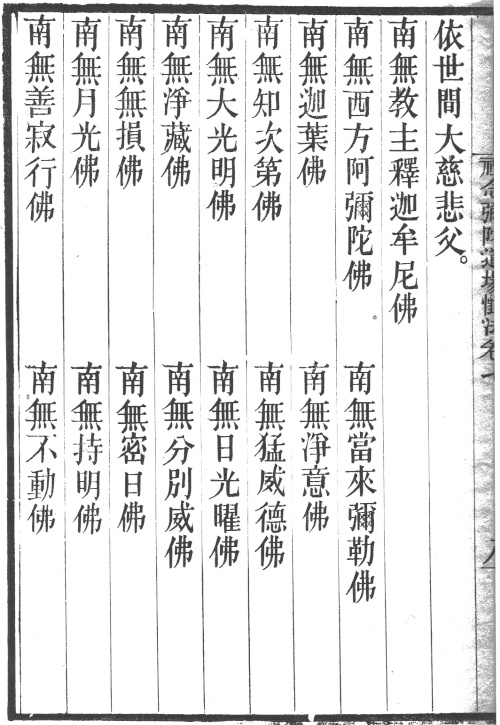 依世間大慈悲父。
南無教主釋迦牟尼佛
南無西方阿彌陀佛
南無當來彌勒佛
南無迦葉佛
南無淨意佛
南無知次第佛
南無猛威德佛
南無大光明佛
南無日光曜佛
南無淨藏佛
南無分別威佛
南無無損佛
南無密日佛
南無月光佛
南無持明佛
南無善寂行佛
南無不動佛